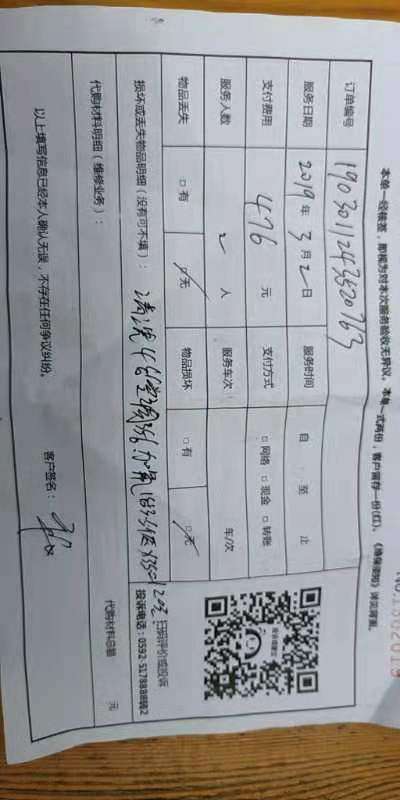 本单一经核签，即视为对本次服务验收无异议。本单一式两份，客户留存一份(红)、《维保须知》详见背面。
订单编号 1903011243520763
服务日期 2019年3月2日 服务时间 自 至 止
支付费用 476 元 支付方式 □网络 □现金 □转账
服务人数 2 人 服务车次 车/次
物品丢失 □有 □无 物品损坏 □有 □无
扫码评价或投诉
投诉电话：0592-5178888转2
损坏或丢失物品明细（没有可不填）：清洗
代购材料明细（维修业务）： 代购材料总额 元
以上填写信息已经本人确认无误，不存在任何争议纠纷。 客户签名：